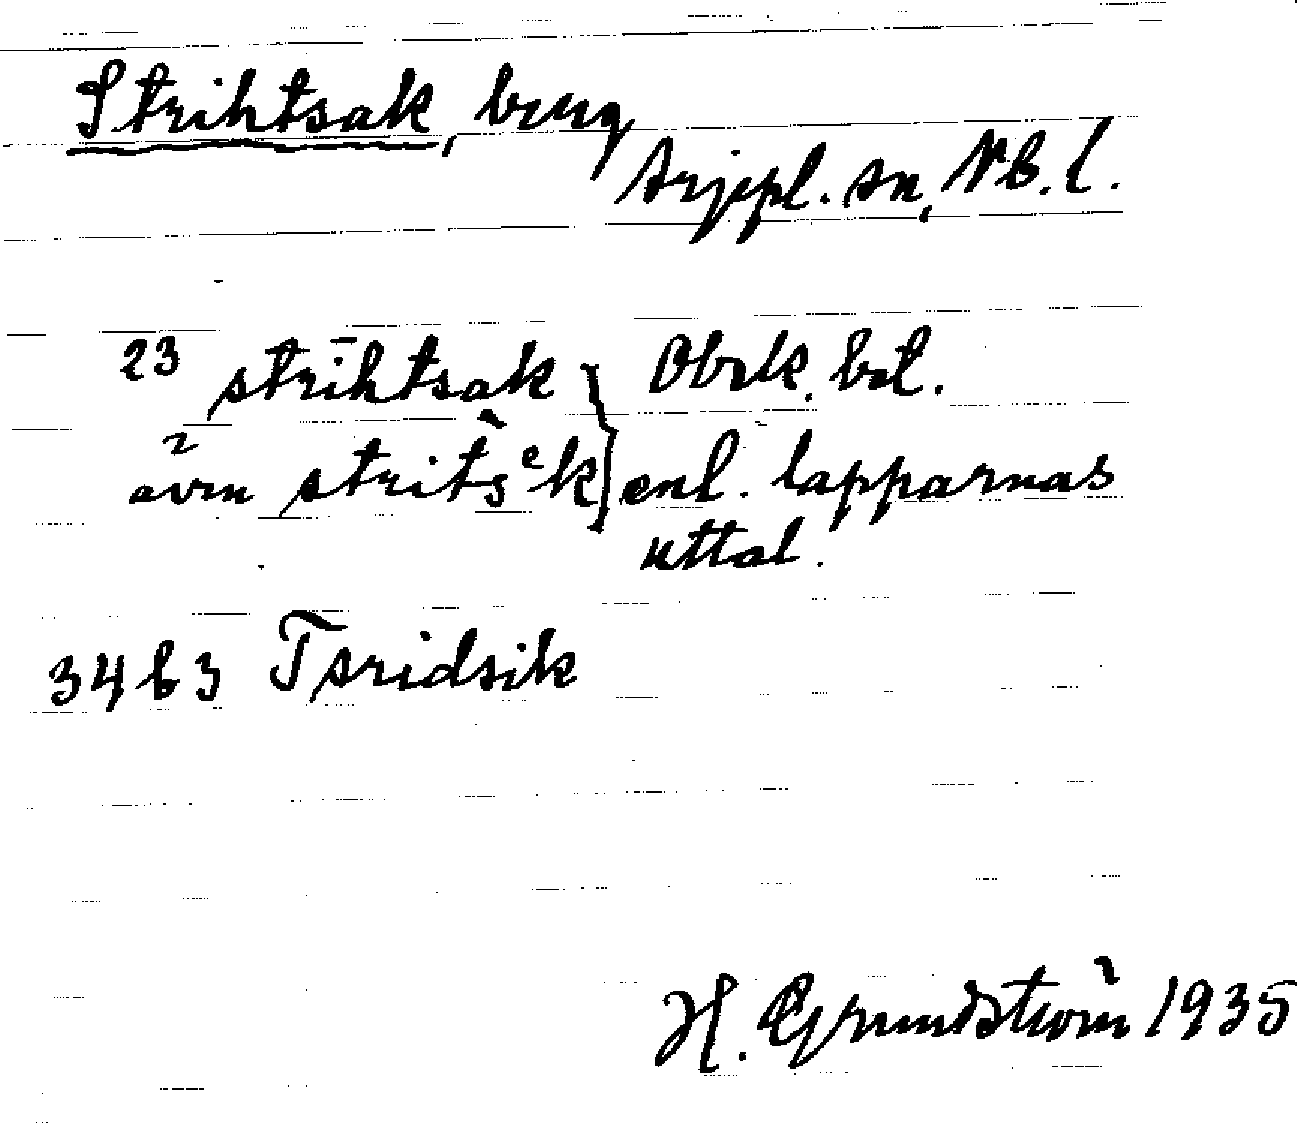 Strihtsak, berg
Arjepl. sn, Vb. l.
23 strīhtsak } Obek. bet.
även stritsᵉk } enl. lapparnas
uttal.
3463 Tsridsik
H. Grundström 1935